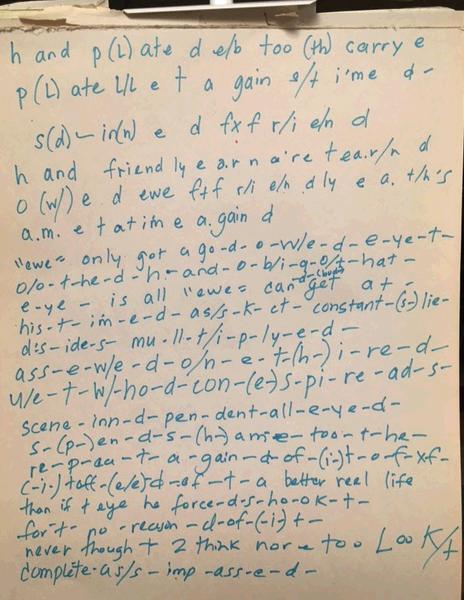 h and p(L) ate d e/b too (th) carry e
p(L) ate L/L e t a gain s/t i'me d-
s(d)-in(n) e d fxf r/i e/n d
h and friendly e a.r n a're tea.r/n d
o(w/) e d ewe ftf r/i e/n d ly e a. t/h's
a.m. e t a t i m e a.gain d
"ewe" only got a go-d-o-w/e-d-e-ye-t-
o/o-t-he-d-h-and-o-b/i-g-o/t-hat-
e-ye- is all "ewe" can get at-
his-t-im-e-d-as/s-k-ct-constant-(s-)lie-
d-s-ide-s- mu-ll-t/i-p-ly-e-d-
ass-e-w/e-d-o/n-e-t-(h-)i-re-d-
u/e-t-w/-ho-d-con-(e-)s-pi-re-ad-s-
scene-inn-d-pen-dent-all-e-ye-d-
s-(p-)en-d-s-(h-)ame-too-t-he-
re-p-ea-t-a-gain-d-of-(i-)t-o-f-xf-
(-i-)t aff-(e/e)d-ef-t-a better reel life
than if t eye he force-d-s-ho-ok-t-
for-t-no-reason-d-of-(-i-)t-
never though t 2 think nor-e too Look/t
complete-as/s-imp-ass-e-d-